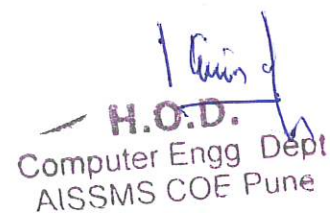 H.O.D.
Computer Engg Dept
AISSMS COE Pune